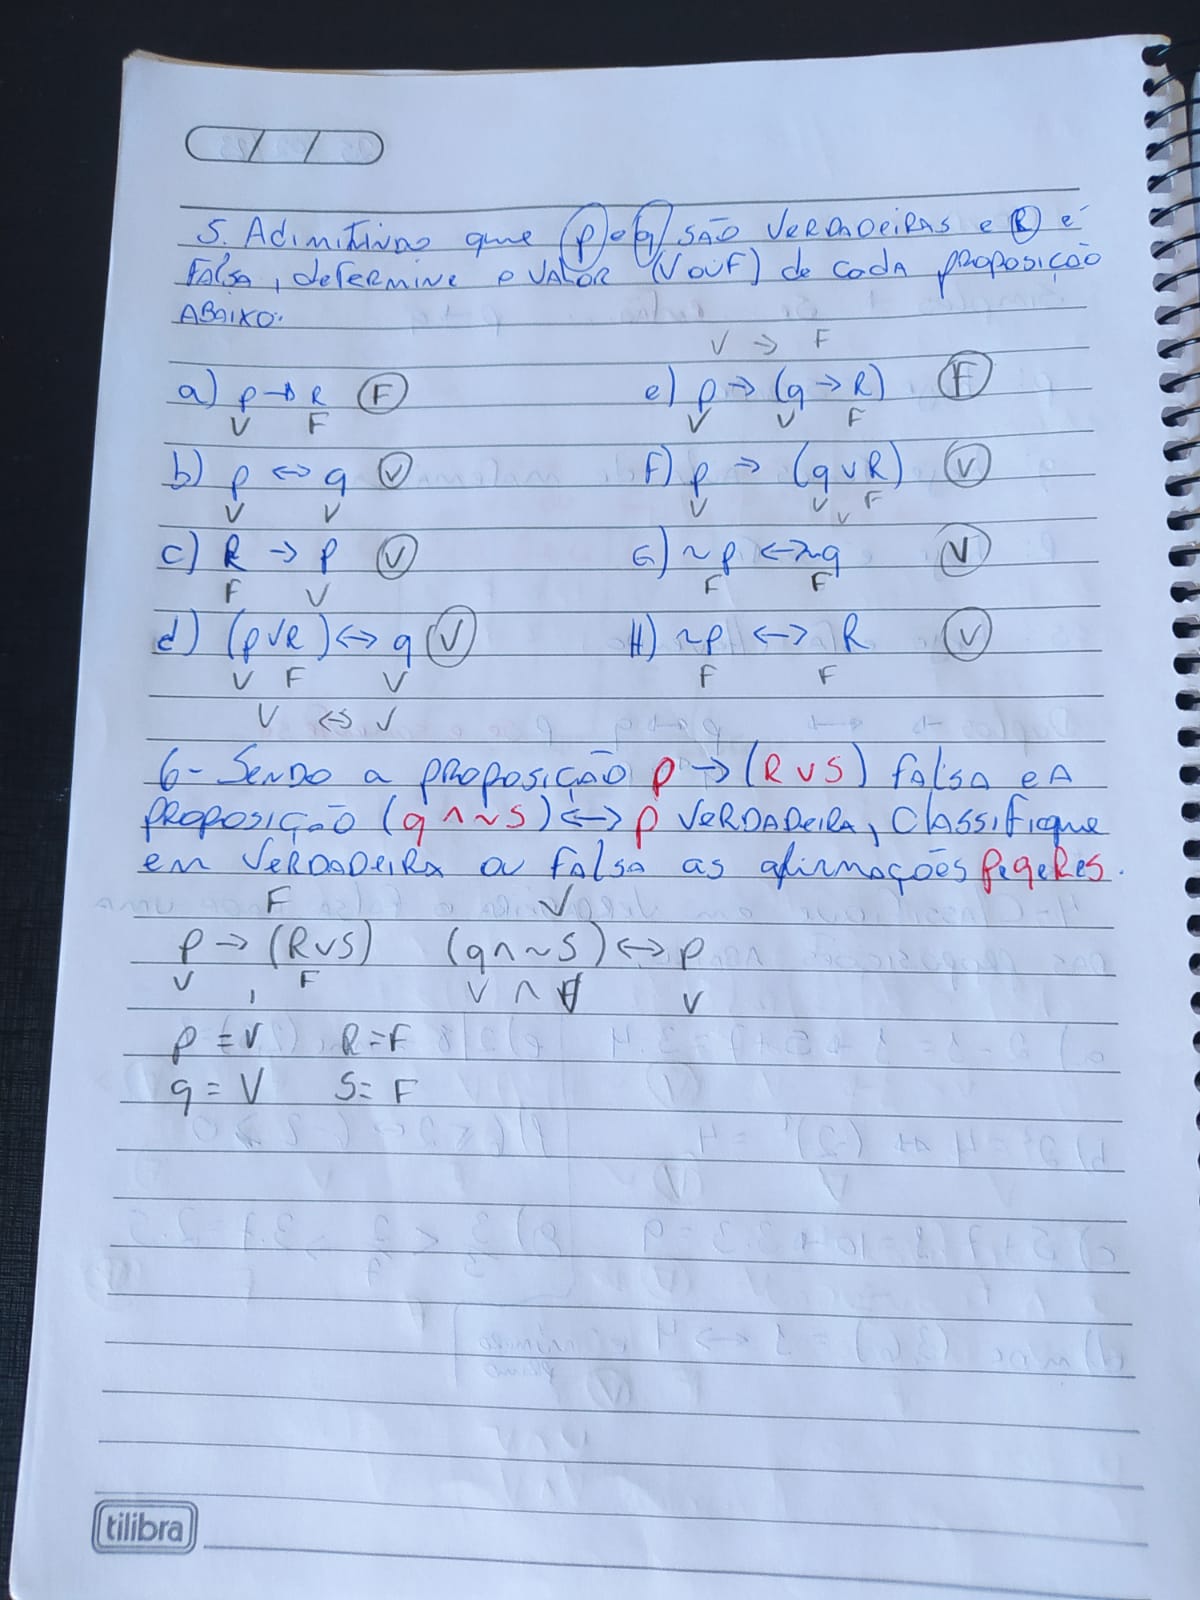 5. Adimitindo que p e q são verdadeiras e R é
falsa, determine o valor (V ou F) de cada proposição
abaixo.
V → F
a) p → R F e) p → (q → R) F
V F V V F
b) p ↔ q V F) p → (q ∨ R) V
V V V V F
V
c) R → p V G) ~p ↔ ~q V
F V F F
d) (p ∨ R) ↔ q V H) ~p ↔ R V
V F V F F
V ↔ V
6- Sendo a proposição p → (R ∨ S) falsa e a
proposição (q ∧ ~S) ↔ p verdadeira, classifique
em verdadeira ou falsa as afirmações p q e R e S.
F V
p → (R ∨ S) (q ∧ ~S) ↔ p
V F V ∧ V
p = V R = F
q = V S = F
tilibra